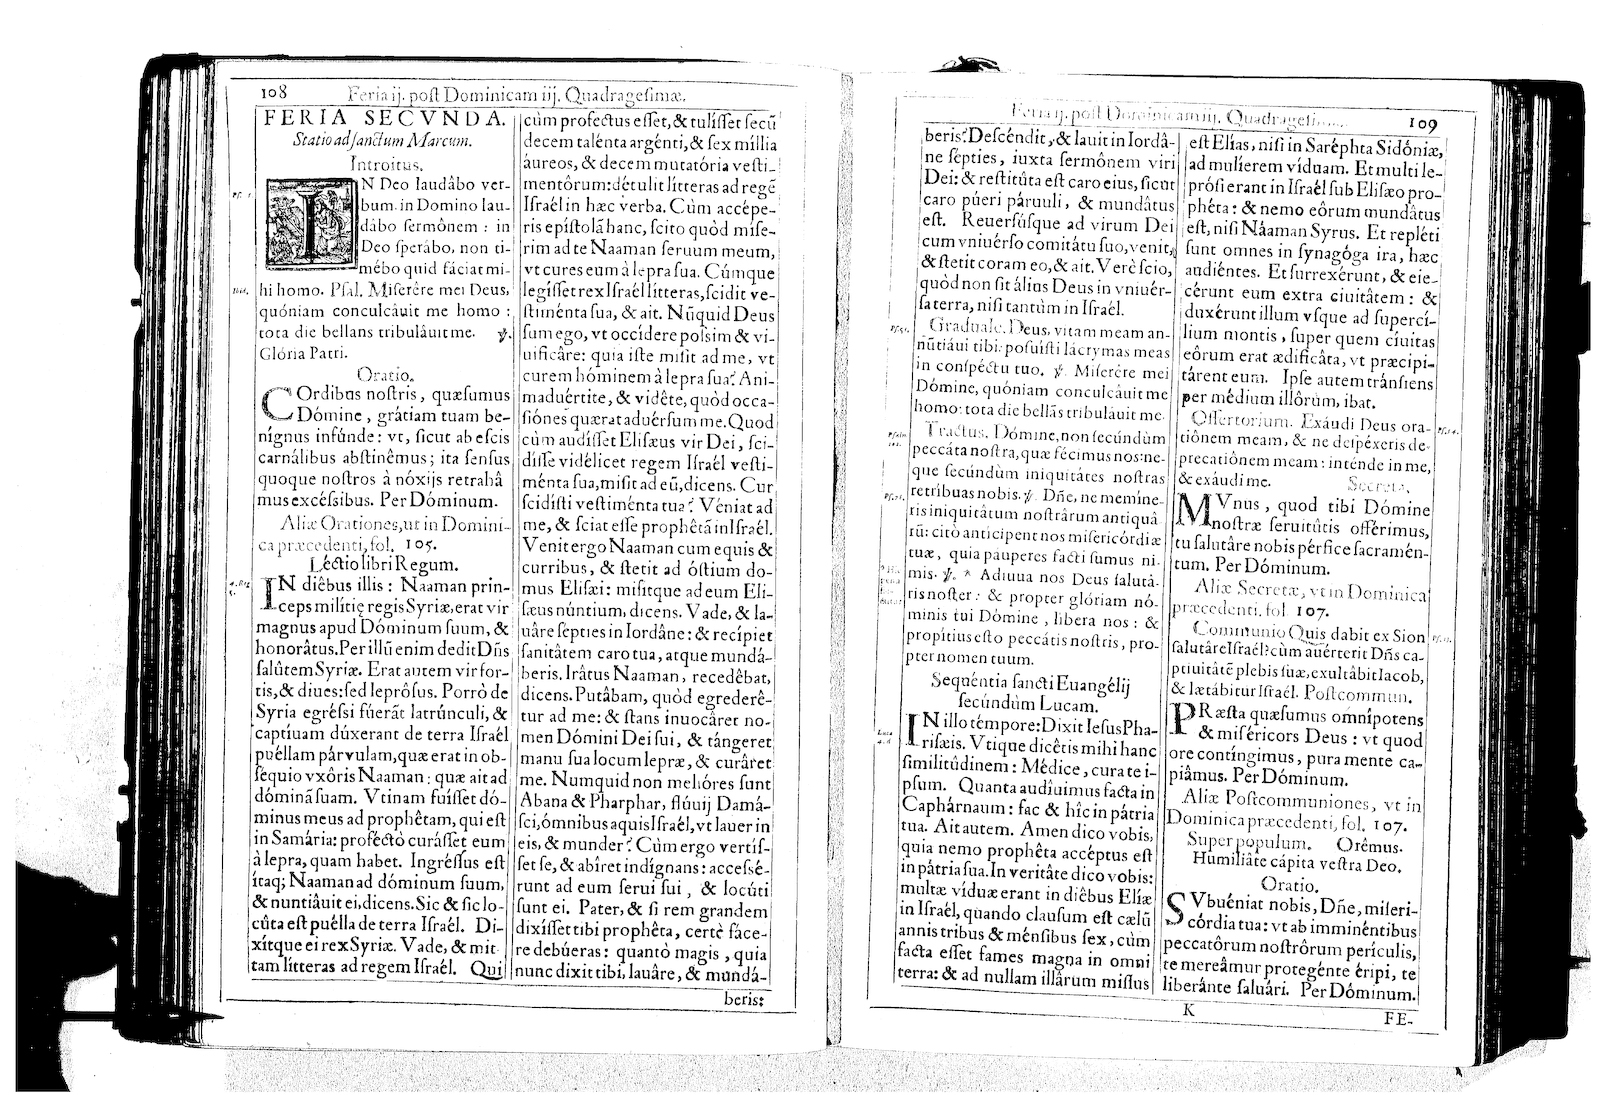 108 Feria ij. post Dominicam iij. Quadragesimæ.
FERIA SECVNDA.
Statio ad sanctum Marcum.
Introitus.
IN Deo laudâbo ver-
bum. in Domino lau-
dábo sermônem : in
Deo sperábo, non ti-
mébo quid fáciat mi-
hi homo. Psal. Miserêre mei Deus,
quóniam conculcâuit me homo :
tota die bellans tribulâuit me. ℣.
Glória Patri.
Oratio.
COrdibus nostris, quæsumus
Dómine, grátiam tuam be-
nígnus infúnde: vt, sicut ab escis
carnálibus abstinêmus; ita sensus
quoque nostros à nóxijs retrahâ
mus excéssibus. Per Dóminum.
Aliæ Orationes, ut in Domini-
ca præcedenti, fol. 105.
Léctio libri Regum.
IN diêbus illis : Naaman prin-
ceps milítię regis Syriæ, erat vir
magnus apud Dóminum suum, &
honorâtus. Per illũ enim dedit Dñs
salûtem Syriæ. Erat autem vir for-
tis, & diues: sed leprôsus. Porrò de
Syria egréssi fúerãt latrúnculi, &
captíuam dúxerant de terra Israél
puéllam párvulam, quæ erat in ob-
séquio vxôris Naaman: quæ ait ad
dóminã suam. Vtinam fuísset dó-
minus meus ad prophêtam, qui est
in Samária: proféctò curásset eum
à lepra, quam habet. Ingréssus est
ítaq; Naaman ad dóminum suum,
& nuntiâuit ei, dicens. Sic & sic lo-
cûta est puélla de terra Israél. Di-
xítque ei rex Syriæ. Vade, & mit-
tam lítteras ad regem Israél. Qui
cùm profectus esset, & tulísset secũ
decem talénta argénti, & sex míllia
áureos, & decem mutatória vesti-
mentôrum: détulit lítteras ad regẽ
Israél in hæc verba. Cùm accépe-
ris epístolã hanc, scito quòd míse-
rim ad te Naaman seruum meum,
vt cures eum à lepra sua. Cúmque
legísset rex Israél lítteras, scidit ve-
stiménta sua, & ait. Nũquid Deus
sum ego, vt occídere possim & vi-
uificâre: quia iste misit ad me, vt
curem hóminem à lepra sua? Ani-
maduértite, & vidête, quòd occa-
siónes quærat aduérsum me. Quod
cùm audísset Elisæus vir Dei, sci-
dísse vidélicet regem Israél vesti-
ménta sua, misit ad eũ, dicens. Cur
scidísti vestiménta tua? Véniat ad
me, & sciat esse prophêtã in Israél.
Venit ergo Naaman cum equis &
curribus, & stetit ad óstium do-
mus Elisæi: misitque ad eum Eli-
sæus núntium, dicens. Vade, & la-
uâre septies in Iordâne: & recípiet
sanitâtem caro tua, atque mundá-
beris. Irâtus Naaman, recedêbat,
dicens. Putâbam, quòd egrederê-
tur ad me: & stans inuocâret no-
men Dómini Dei sui, & tángeret
manu sua locum lepræ, & curâret
me. Numquid non melióres sunt
Abana & Pharphar, flúuij Damá-
sci, ómnibus aquis Israél, vt lauer in
eis, & munder? Cùm ergo vertís-
set se, & abîret indígnans: accessé-
runt ad eum serui sui, & locúti
sunt ei. Pater, & si rem grandem
dixísset tibi prophêta, certè fáce-
re debúeras: quantò magis, quia
nunc dixit tibi, lauâre, & mundá-
beris?
Feria ij. post Dominicam iij. Quadragesi 109
beris? Descéndit, & lauit in Iordâ-
ne sépties, iuxta sermônem viri
Dei: & restitúta est caro eius, sicut
caro púeri páruuli, & mundâtus
est. Reuersúsque ad virum Dei
cum vniuérso comitátu suo, venit,
& stetit coram eo, & ait. Verè scio,
quòd non sit álius Deus in vniuér-
sa terra, nisi tantùm in Israél.
Graduale. Deus, vitam meam an-
nũtiáui tibi: posuísti lácrymas meas
in conspéctu tuo. ℣. Miserêre mei
Dómine, quóniam conculcâuit me
homo: tota die bellãs tribulâuit me.
Tractus. Dómine, non secúndùm
peccáta nostra, quæ fécimus nos: ne-
que secúndùm iniquitátes nostras
retríbuas nobis. ℣. Dñe, ne memíne-
ris iniquitâtum nostrârum antiquâ
rũ: citò anticipent nos misericórdiæ
tuæ, quia páuperes facti sumus ni-
mis. ℣. * Adiuua nos Deus salutá-
ris noster: & propter glóriam nó-
minis tui Dómine, libera nos : &
propítius esto peccátis nostris, pro-
pter nomen tuum.
Sequéntia sancti Euangélij
secúndùm Lucam.
IN illo témpore: Dixit Iesus Pha-
risæis. Vtique dicêtis mihi hanc
similitúdinem: Médice, cura te i-
psum. Quanta audíuimus facta in
Caphárnaum: fac & hîc in pátria
tua. Ait autem. Amen dico vobis,
quia nemo prophêta accéptus est
in pátria sua. In veritâte dico vobis:
multæ víduæ erant in diêbus Elíæ
in Israél, quando clausum est cælũ
annis tribus & ménsibus sex, cùm
facta esset fames magna in omni
terra: & ad nullam illârum missus
est Elías, nisi in Saréphta Sidóniæ,
ad mulíerem víduam. Et multi le-
prósi erant in Israél sub Elisæo pro-
phéta: & nemo eôrum mundâtus
est, nisi Náaman Syrus. Et repléti
sunt omnes in synagóga ira, hæc
audiéntes. Et surrexérunt, & eie-
cérunt eum extra ciuitâtem : &
duxérunt illum vsque ad supercí-
lium montis, super quem cíuitas
eôrum erat ædificâta, vt præcipi-
tárent eum. Ipse autem tránsiens
per médium illôrum, ibat.
Offertorium. Exáudi Deus ora-
tiônem meam, & ne despéxeris de-
precatiônem meam: inténde in me,
& exáudi me. Secreta.
MVnus, quod tibi Dómine
nostræ seruitûtis offérimus,
tu salutâre nobis pérfice sacramén-
tum. Per Dóminum.
Aliæ Secretæ, vt in Dominica
præcedenti, fol 107.
Communio Quis dabit ex Sion
salutáre Israél? cùm auérterit Dñs ca-
ptiuitâtẽ plebis suæ, exultâbit Iacob,
& lætábitur Israél. Postcommun.
PRæsta quæsumus omnípotens
& miséricors Deus : vt quod
ore contíngimus, pura mente ca-
piâmus. Per Dóminum.
Aliæ Postcommuniones, vt in
Dominica præcedenti, fol. 107.
Super populum. Orémus.
Humiliâte cápita vestra Deo.
Oratio.
SVbuéniat nobis, Dñe, miseri-
córdia tua: vt ab imminéntibus
peccatórum nostrôrum perículis,
te mereâmur protegénte éripi, te
liberânte saluári. Per Dóminum.
K FE-